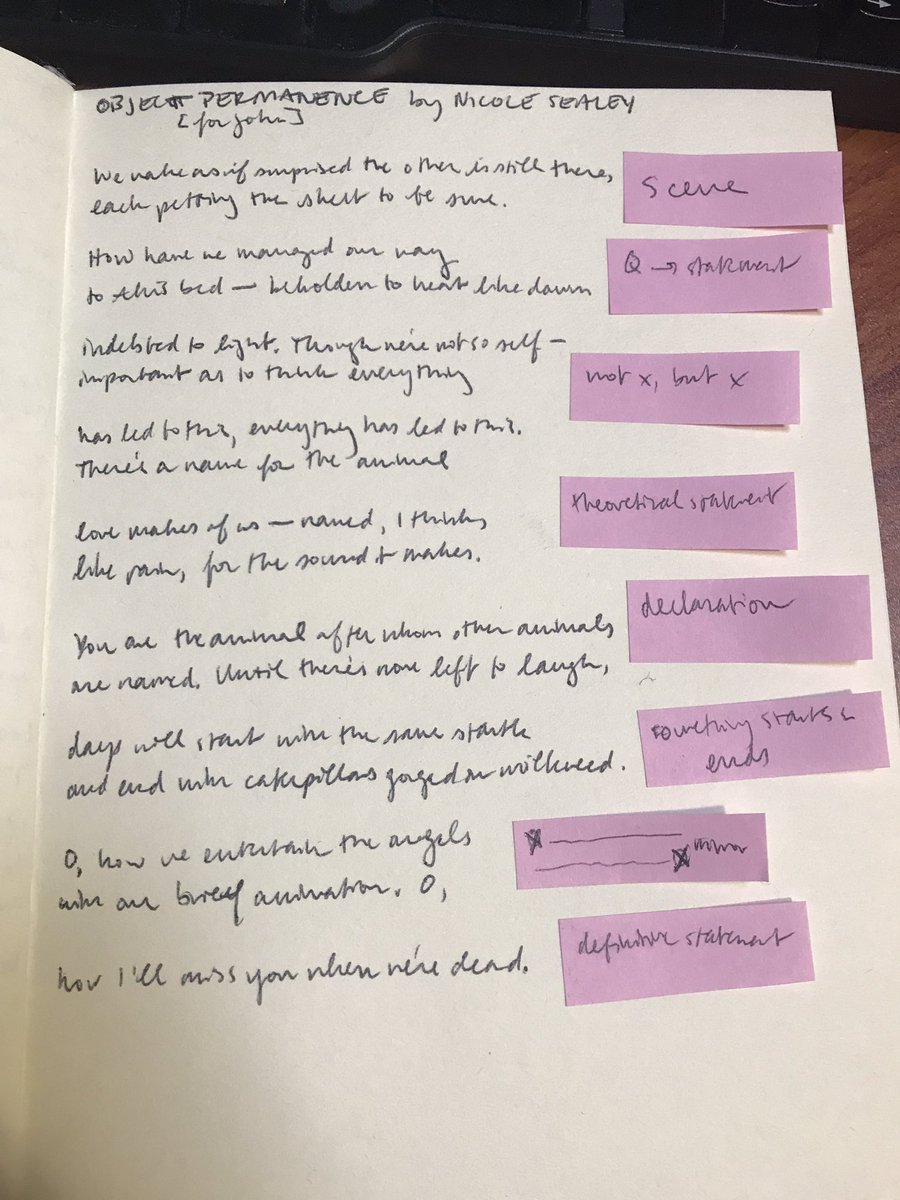 OBJECT PERMANENCE by NICOLE SEALEY
[for John]
We wake as if surprised the other is still there,
each petting the sheet to be sure.
Scene
How have we managed our way
to this bed — beholden to heat like dawn
Q → statement
indebted to light. Though we're not so self-
important as to think everything
not x, but x
has led to this, everything has led to this.
There's a name for the animal
love makes of us — named, I think,
like pain, for the sound it makes.
theoretical statement
You are the animal after whom other animals
are named. Until there's none left to laugh,
declaration
days will start with the same startle
and end with caterpillars gorged on milkweed.
something starts &
ends
O, how we entertain the angels
with our brief animation. O,
mirror
how I'll miss you when we're dead.
definitive statement